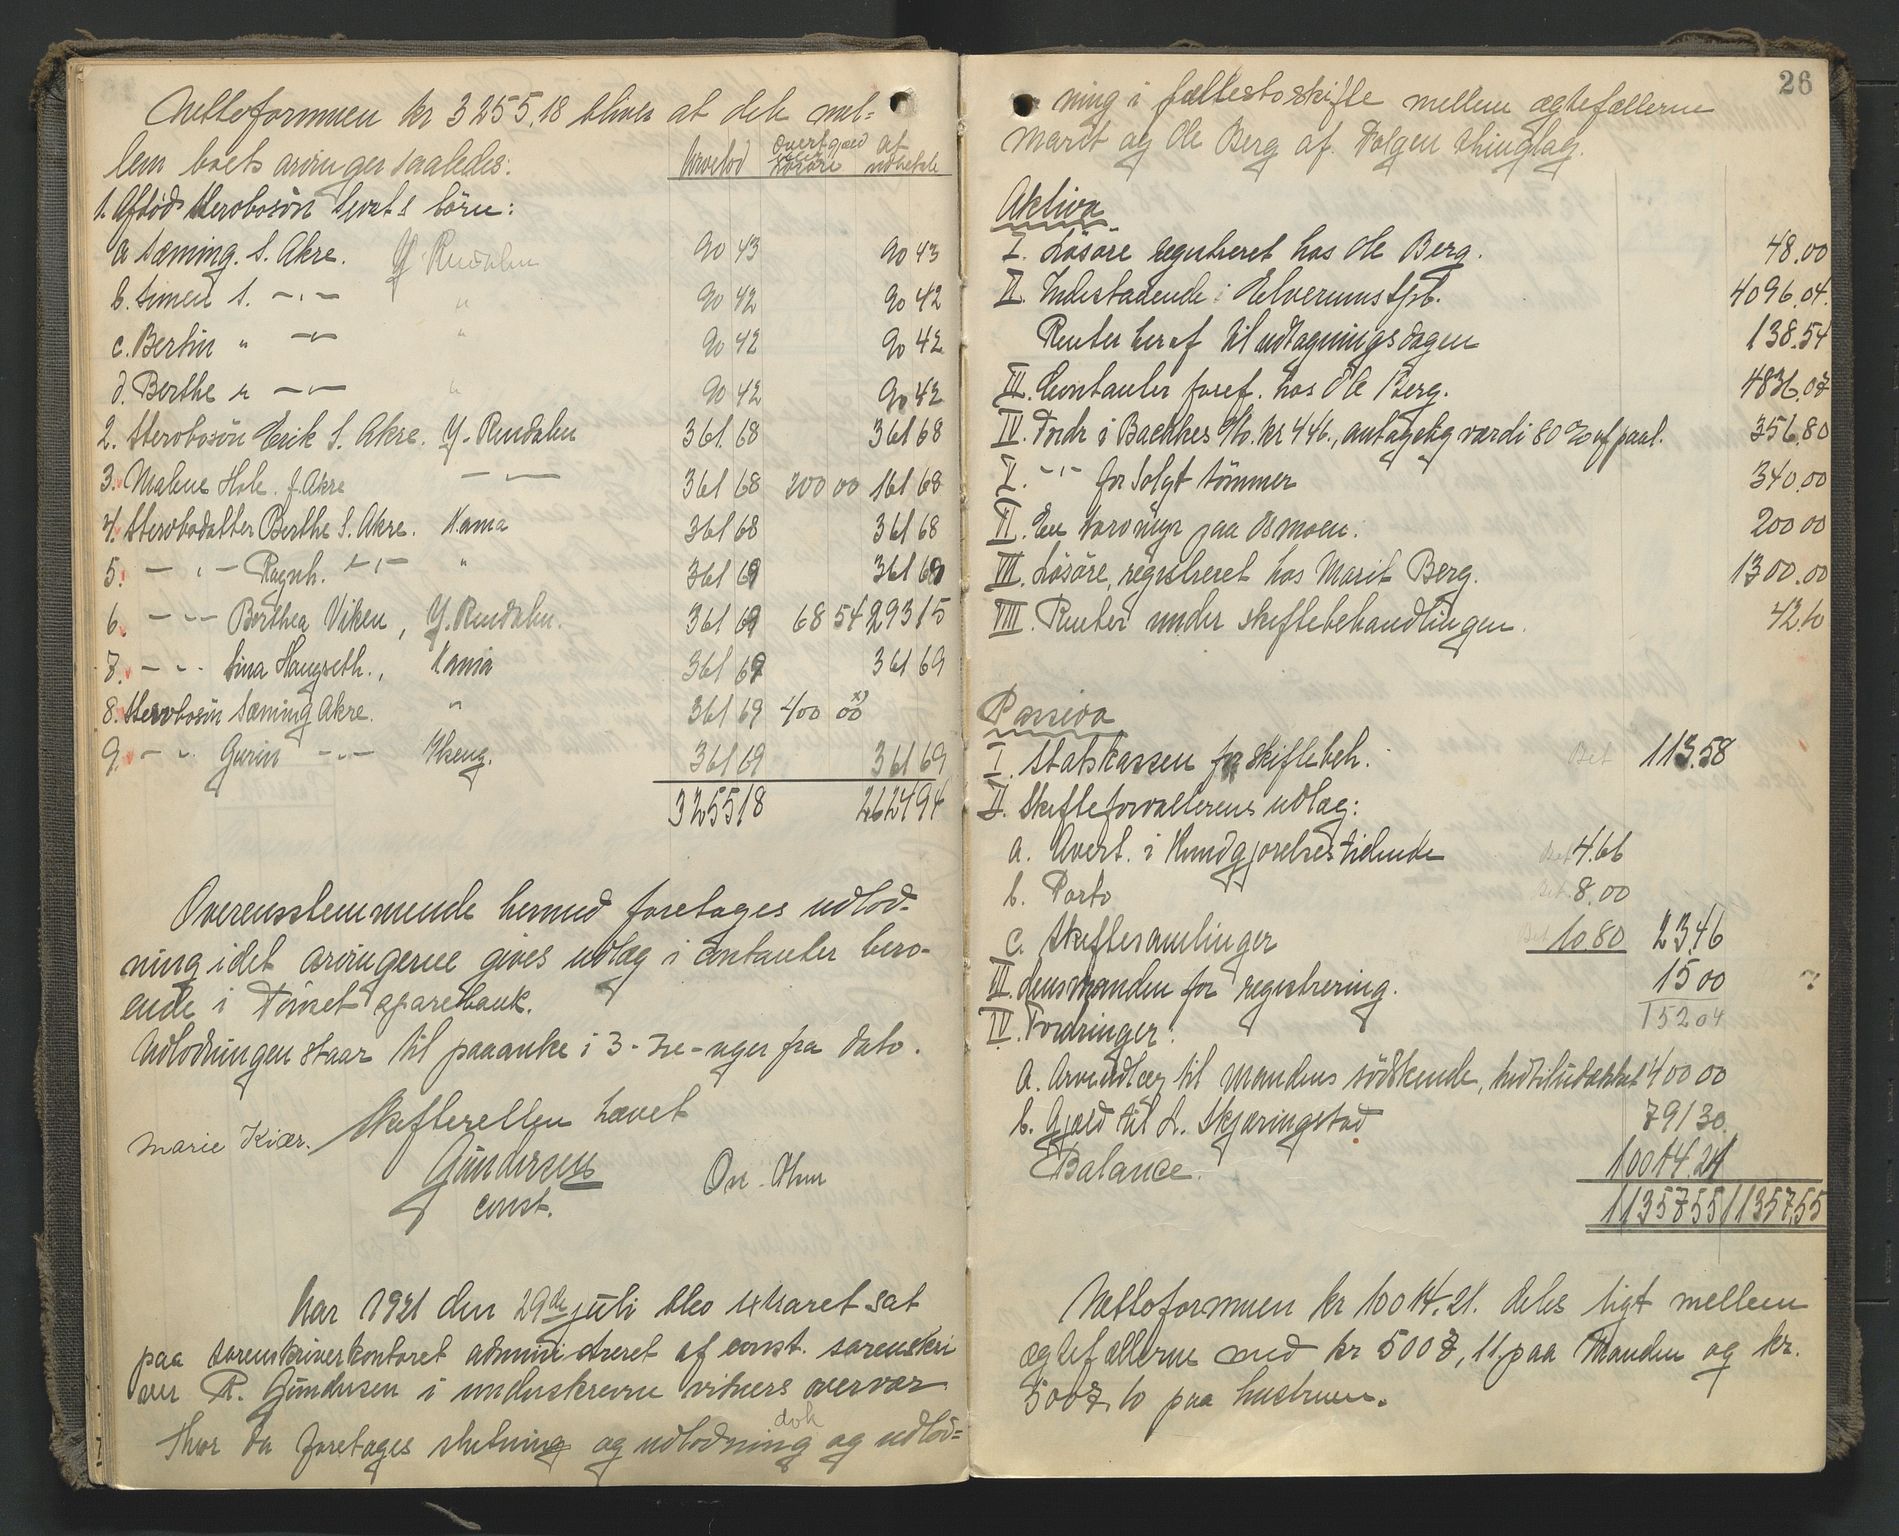 Nettoformuen kr 3255.18 bliver at dele mel-
lem boets arvinger saaledes:
Arvelod overt gjæld løsøre at udbetale
1. Afdød Stervbosøn Sjverts börn:
a. Sæming. S. Akre. Y Rendalen 90 43 90 43
b. Simen S. -"- " 90 42 90 42
c. Bertin " -"- " 90 42 90 42
d. Berthe " -"- " 90 42 90 42
2. Stervbosön Erik S. Akre. Y. Rendalen 361 68 361 68
3. Malene Hole f. Akre -"- 361 68 200 00 161 68
4. Stervbodatter Berthe S. Akre. Hama 361 68 361 68
5. - " - Ragnh. - " - " 361 69 361 69
6. - " - Berthea Viken, Y. Rendalen. 361 69 68 54 293 15
7. - " - Sina Haugseth., Hama 361 69 361 69
8. Stervbosön Sæming Akre. " 361 69 400 00 x)
9. - " - Gurin - " - Kveng. 361 69 361 69
3255 18 2624 94
Overensstemmende hermed foretages udlod-
ning idet arvingerne gives udlæg i contanter bero-
ende i Tönset sparebank.
Udlodningen staar til paaanke i 3 - tre - uger fra dato.
Skifteretten hævet
Marie Kiær. Gundersen
const.
Aar 1921 den 29de juli blev skifteret sat
paa sorenskriverkontoret administreret af const. sorenskri
ver R. Gundersen i underskrevne vitners overvær
Hvor da foretages slutning og udlodning dok og udlod-
26
ning i fællesboskifte mellem ægtefællerne
Marit og Ole Berg af Tolgen thinglag.
Aktiva
I. Løsøre registreret hos Ole Berg. 48.00
II. Indestaaende i Elverums Spb. 4096.04
Renter heraf til udtagningsdagen 138.54
III. Contanter foref. hos Ole Berg. 4836.07
IV. Fordr i Backkes %bo. kr 446., antagelig værdi 80% af paal. 356.80
V. -"- for solgt tømmer 340.00
VI. En torvmyr paa Osmoen. 200 00
VII. Løsøre, registreret hos Marit Berg. 1300.00
VIII. Renter under skiftebehandlingen. 42.10
Passiva
I. Statskassen for skiftebeh. Bet 113.58
II. Skifteforvalterens udlæg:
a. Avert. i Kundgjørelsestidende Bet 4.66
b. Porto Bet. 8.00
c. Skiftesamlinger Bet 10 80 23.46
III. Lensmanden for registrering. 15 00
152 04
IV. Fordringer:
a. Arveudlæg til mandens södskende, hidtil udækket 400 00
b. Gjæld til L. Skjæringstad 791 30.
Balance. 10014.21
11357 55 11357,55
Nettoformuen kr 10014.21. deles ligt mellem
ægtefællerne med kr 5007,11 paa Manden og kr.
5007,10 paa hustruen.